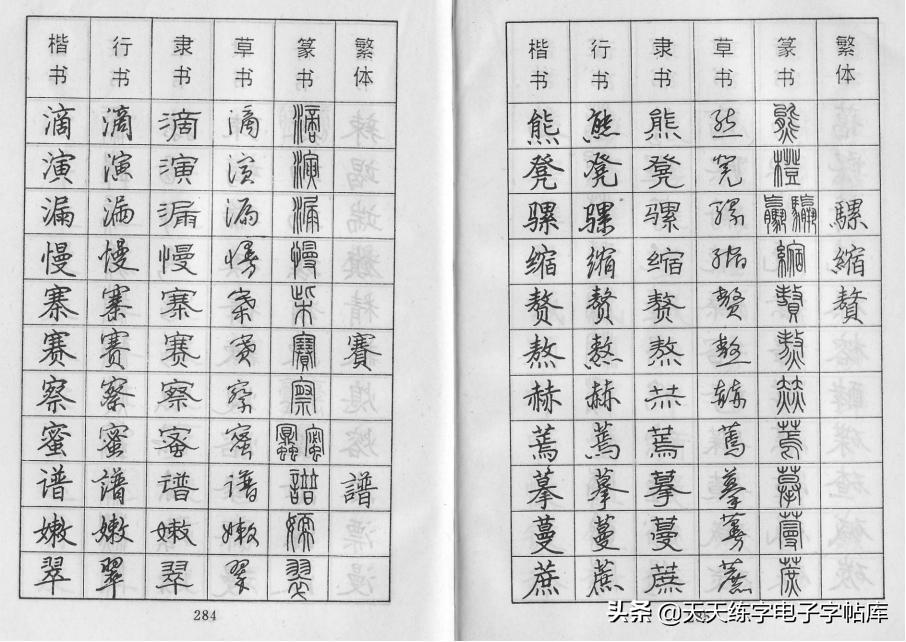 楷书 行书 隶书 草书 篆书 繁体
滴 滴 滴 滴 滴
演 演 演 演 演
漏 漏 漏 漏 漏
慢 慢 慢 慢 慢
寨 寨 寨 寨 柴
赛 赛 赛 赛 賽 賽
察 察 察 察 察
蜜 蜜 蜜 蜜 蜜 蜜
谱 譜 谱 谱 譜 譜
嫩 嫩 嫩 嫩 嫩
翠 翠 翠 翠 翠
284
楷书 行书 隶书 草书 篆书 繁体
熊 熊 熊 熊 熊
凳 凳 凳 凳 橙
骡 骡 骡 骡 騾 騾 騾
缩 缩 缩 缩 縮 縮
赘 赘 赘 赘 贅 贅
熬 熬 熬 熬 熬
赫 赫 赫 赫 赫
蔫 蔫 蔫 蔫 蔫
摹 摹 摹 摹 摹
蔓 蔓 蔓 蔓 蔓
蔗 蔗 蔗 蔗 蔗
头条 @天天练字电子字帖库